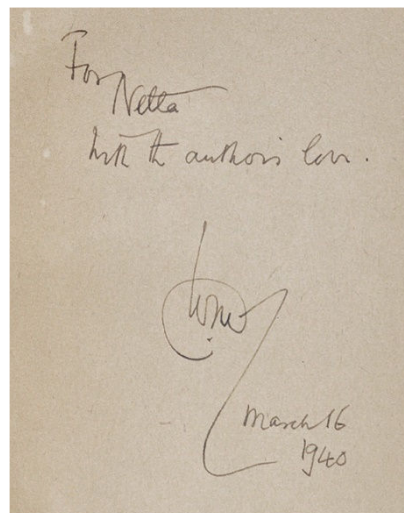 For
Netta
with the author's love.
March 16
1940